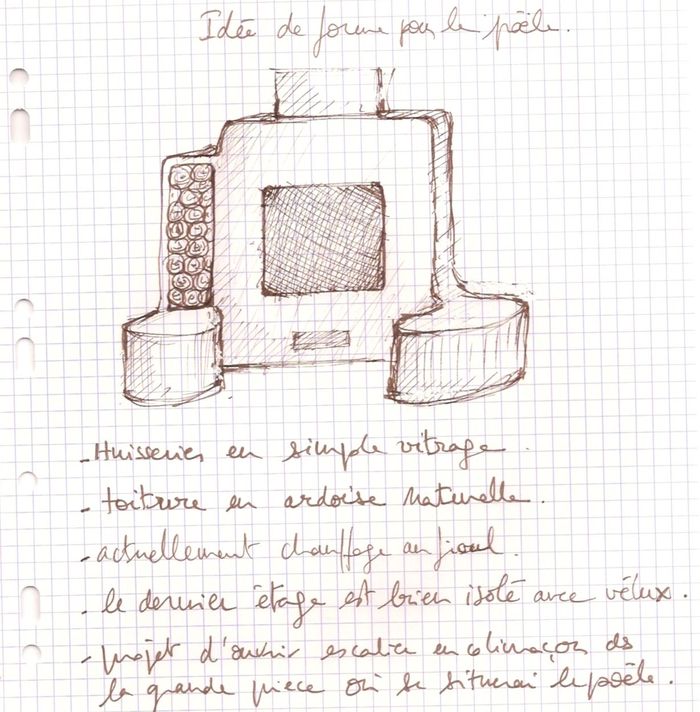 Idée de forme pour le poêle.
- Huisseries en simple vitrage.
- toiture en ardoise naturelle.
- actuellement chauffage au fioul.
- le dernier étage est bien isolé avec vélux.
- projet d'ouvrir escalier en colimaçon ds
la grande pièce où se situerai le poêle.